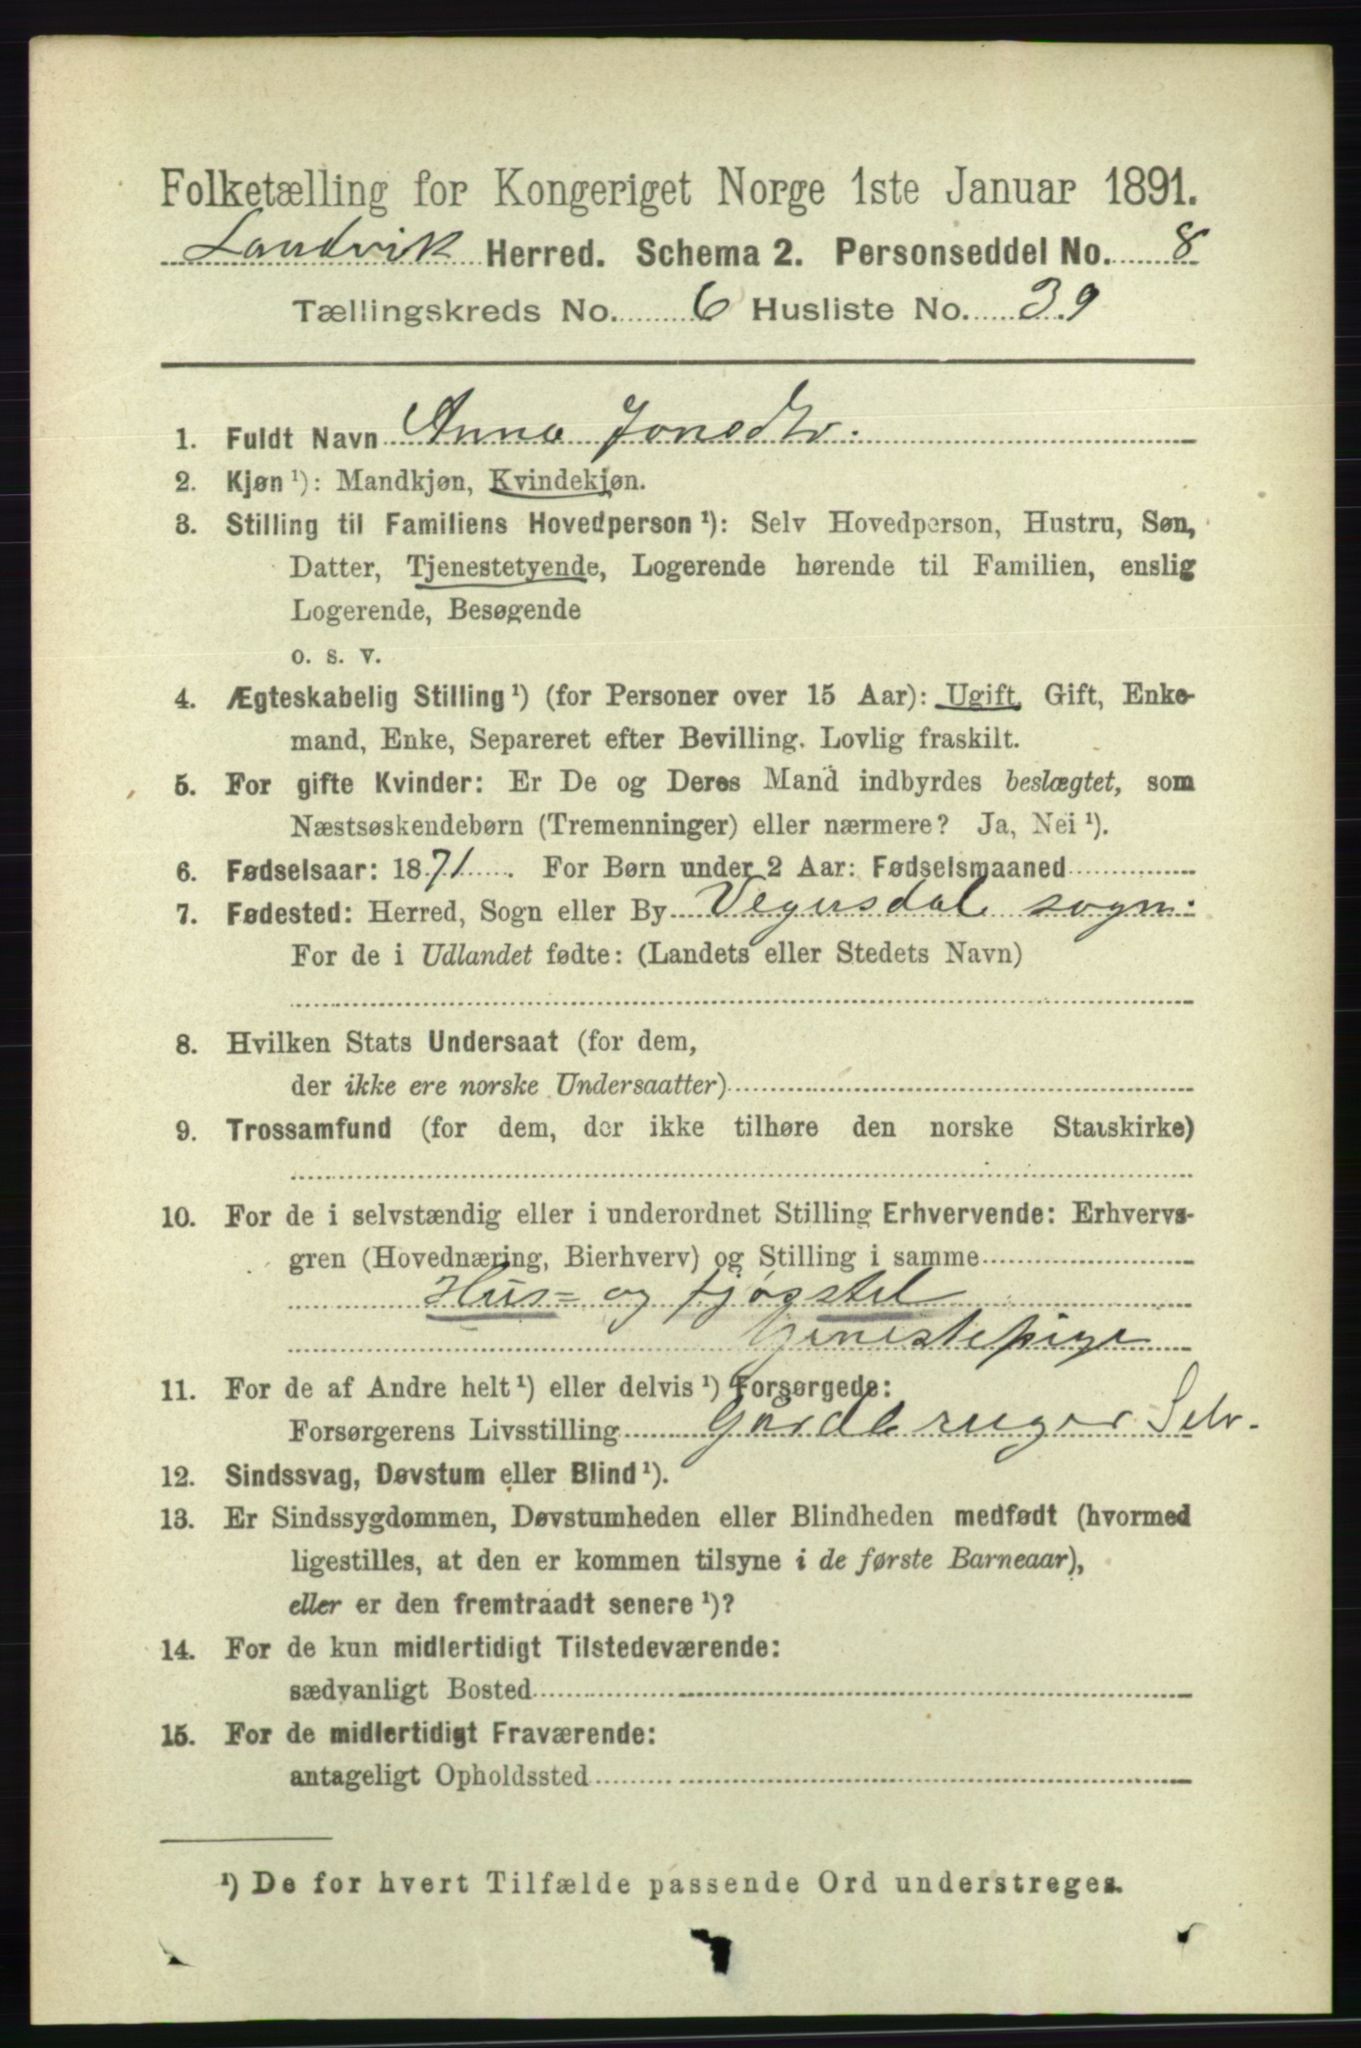 Folketælling for Kongeriget Norge 1ste Januar 1891.
Landvik Herred. Schema 2. Personseddel No. 8
Tællingskreds No. 6 Husliste No. 39
1. Fuldt Navn Anna Jonsdtr.
2. Kjøn ¹): Mandkjøn, Kvindekjøn.
3. Stilling til Familiens Hovedperson ¹): Selv Hovedperson, Hustru, Søn,
Datter, Tjenestetyende, Logerende hørende til Familien, enslig
Logerende, Besøgende
o. s. v.
4. Ægteskabelig Stilling ¹) (for Personer over 15 Aar): Ugift, Gift, Enke-
mand, Enke, Separeret efter Bevilling. Lovlig fraskilt.
5. For gifte Kvinder: Er De og Deres Mand indbyrdes beslægtet, som
Næstsøskendebørn (Tremenninger) eller nærmere? Ja, Nei ¹).
6. Fødselsaar: 1871. For Børn under 2 Aar: Fødselsmaaned
7. Fødested: Herred, Sogn eller By Vegusdal sogn.
For de i Udlandet fødte: (Landets eller Stedets Navn)
8. Hvilken Stats Undersaat (for dem,
der ikke ere norske Undersaatter)
9. Trossamfund (for dem, der ikke tilhøre den norske Statskirke)
10. For de i selvstændig eller i underordnet Stilling Erhvervende: Erhvervs-
gren (Hovednæring, Bierhverv) og Stilling i samme
Hus= og fjøgstel
tjenestepige
11. For de af Andre helt ¹) eller delvis ¹) Forsørgede:
Forsørgerens Livsstilling Gårdbruger Selv.
12. Sindssvag, Døvstum eller Blind ¹).
13. Er Sindssygdommen, Døvstumheden eller Blindheden medfødt (hvormed
ligestilles, at den er kommen tilsyne i de første Barneaar),
eller er den fremtraadt senere ¹)?
14. For de kun midlertidigt Tilstedeværende:
sædvanligt Bosted
15. For de midlertidigt Fraværende:
antageligt Opholdssted
¹) De for hvert Tilfælde passende Ord understreges.